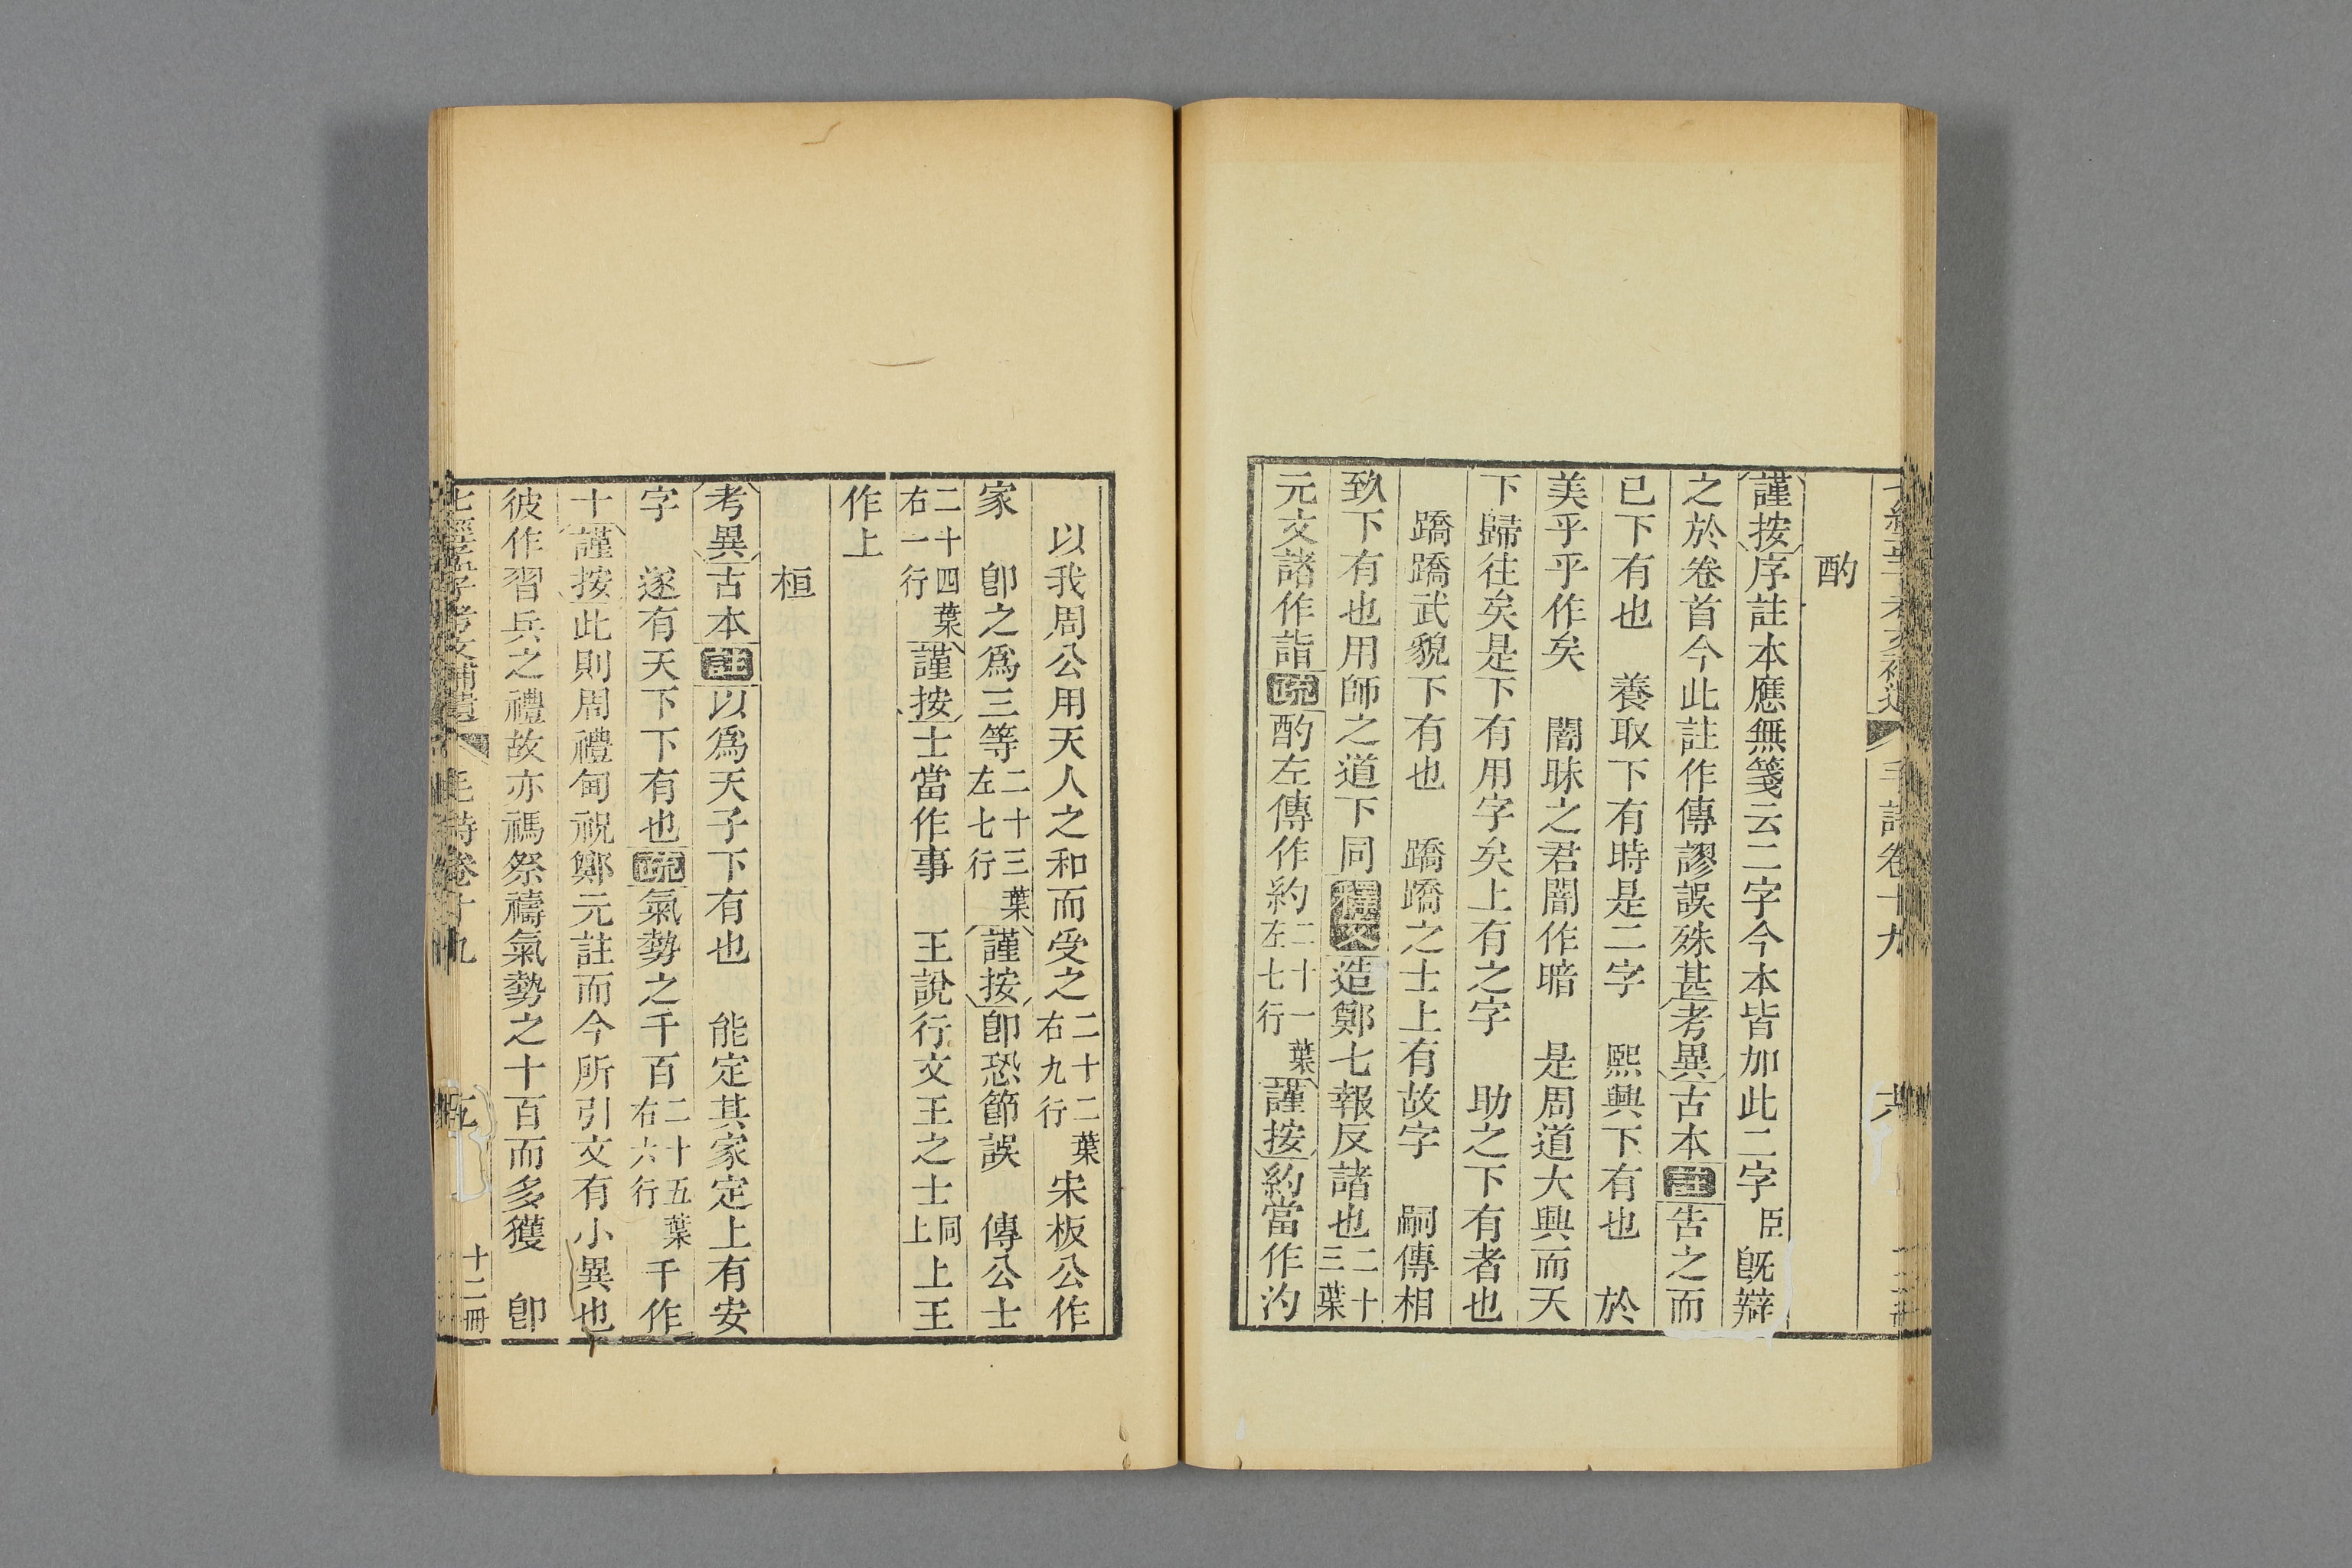 毛詩卷十九
酌
謹按序註本應無箋云二字今本皆加此二字臣既辯
之於卷首今此註作傳謬誤殊甚考異古本註告之而
已下有也　養取下有時是二字　熙興下有也　於
美乎乎作矣　闇昧之君闇作暗　是周道大興而天
下歸往矣是下有用字矣上有之字　助之下有者也
蹻蹻武貌下有也　蹻蹻之士上有故字　嗣傳相
致下有也用師之道下同釋文造鄭七報反諸也二十三葉
元文諸作詣疏酌左傳作約二十一葉左七行謹按約當作汋
以我周公用天人之和而受之二十二葉右九行宋板公作
家　卽之爲三等二十三葉左七行謹按卽恐節誤　傳公士
二十四葉右一行謹按士當作事　王說行文王之士同上上王
作上
桓
考異古本註以爲天子下有也　能定其家定上有安
字　遂有天下下有也疏氣勢之千百二十五葉右六行千作
十謹按此則周禮甸祝鄭元註而今所引文有小異也
彼作習兵之禮故亦禡祭禱氣勢之十百而多獲　卽
七經孟子考文補遺　毛詩卷十九　十二冊